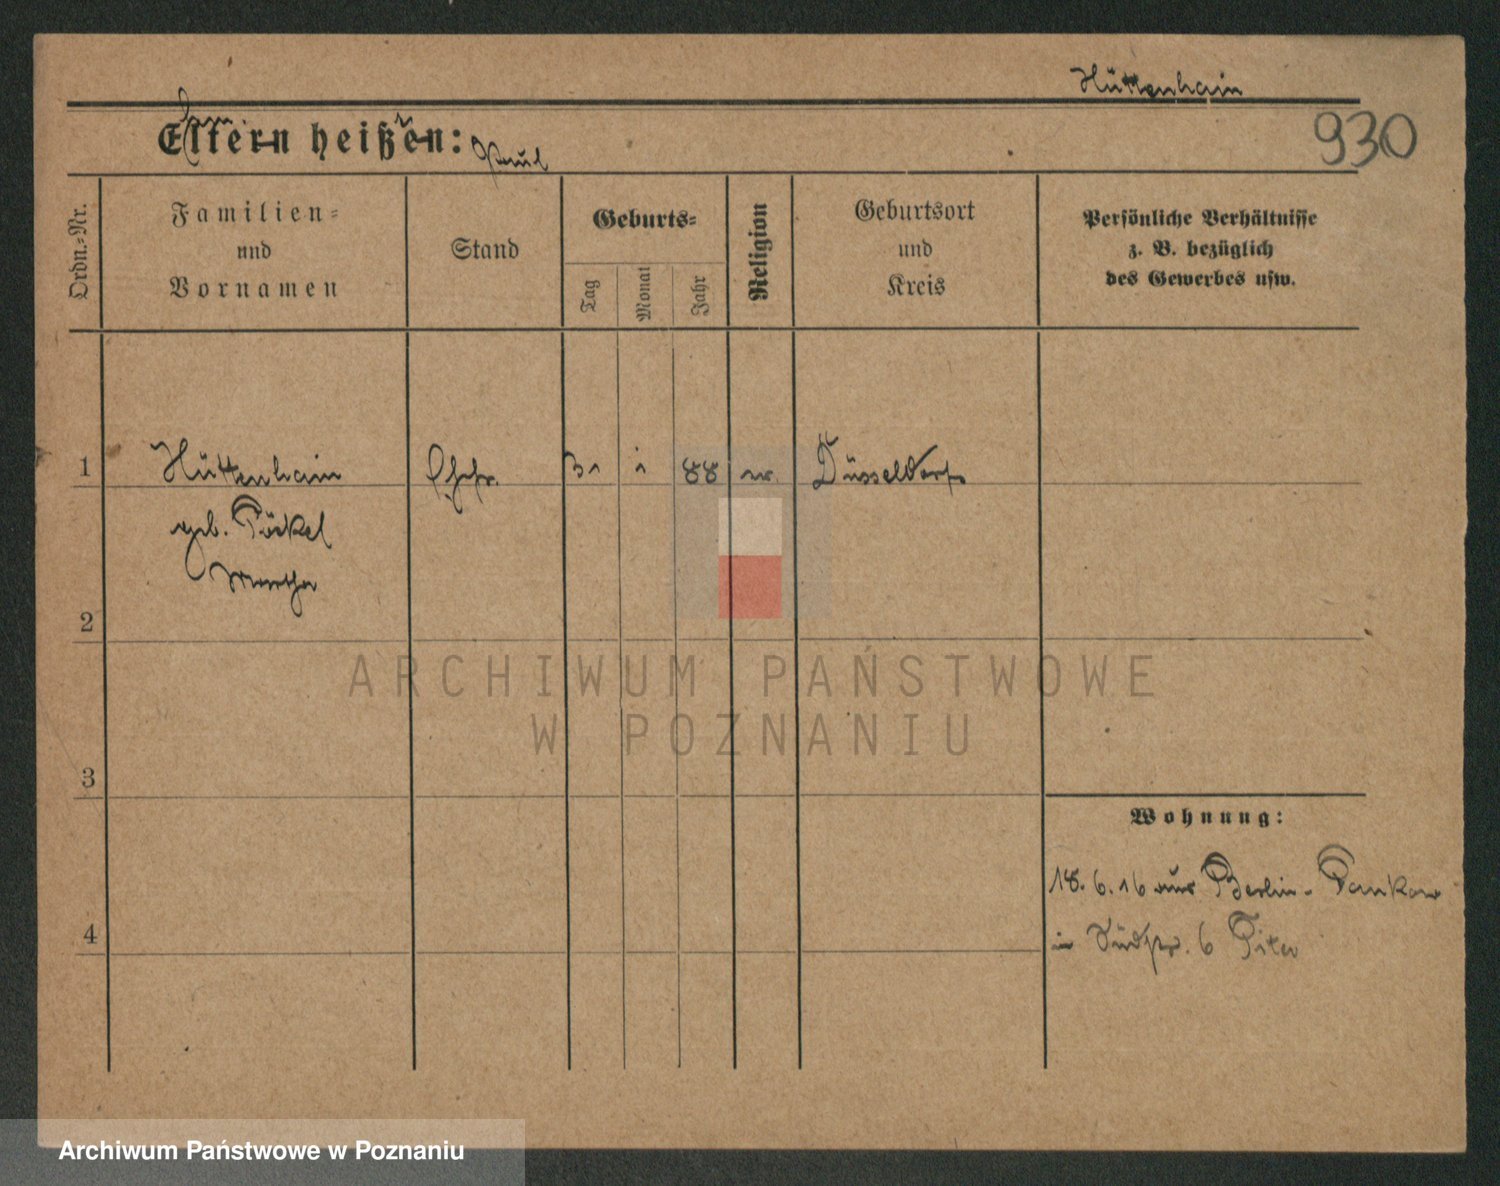 Hüttenhain
Eltern heißen: Paul
930
Ordn.-Nr.
Familien-
und
Vornamen
Stand
Geburts-
Tag
Monat
Jahr
Religion
Geburtsort
und
Kreis
Persönliche Verhältnisse
z. B. bezüglich
des Gewerbes usw.
1
Hüttenhain
geb. Pöckel
Martha
Ehefr.
31
1
88
ev.
Düsseldorf
2
3
4
Wohnung:
18.6.16 aus Berlin-Pankow
in Südstr. 6
ARCHIWUM PAŃSTWOWE
W POZNANIU
Archiwum Państwowe w Poznaniu